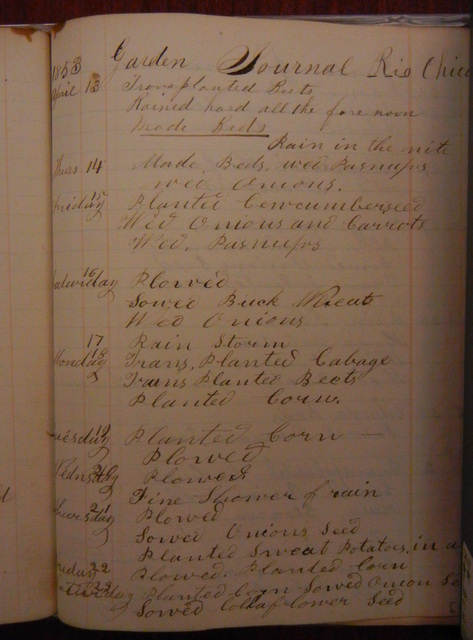 1853 Garden Journal Rio Chico
April 13 Transplanted Beets
Rained hard all the fore noon
Made Beds
Rain in the nite
Thurs 14 Made Beds, wed Pasnups
wed Onions.
Friday 15 Planted Cewcumberseed
Wed Onions and Carrots
Wed, Pasnups
Saturday 16 Plowed
Sowed Buck Wheat
Wed Onions
17 Rain Storm
Monday 18 Trans, Planted Cabage
Trans Planted Beets
Planted Corn.
Tuesday 19 Planted Corn —
Plowed
Wednsday 20 Plowed
Fine Shower of rain
Thursday 21 Plowed
Sowed Onions Seed
Planted Sweat Potatoes, in a
Friday 22 Plowed. Planted Corn
23 Planted Corn - Sowed Onion
Sowed Collaflower Seed